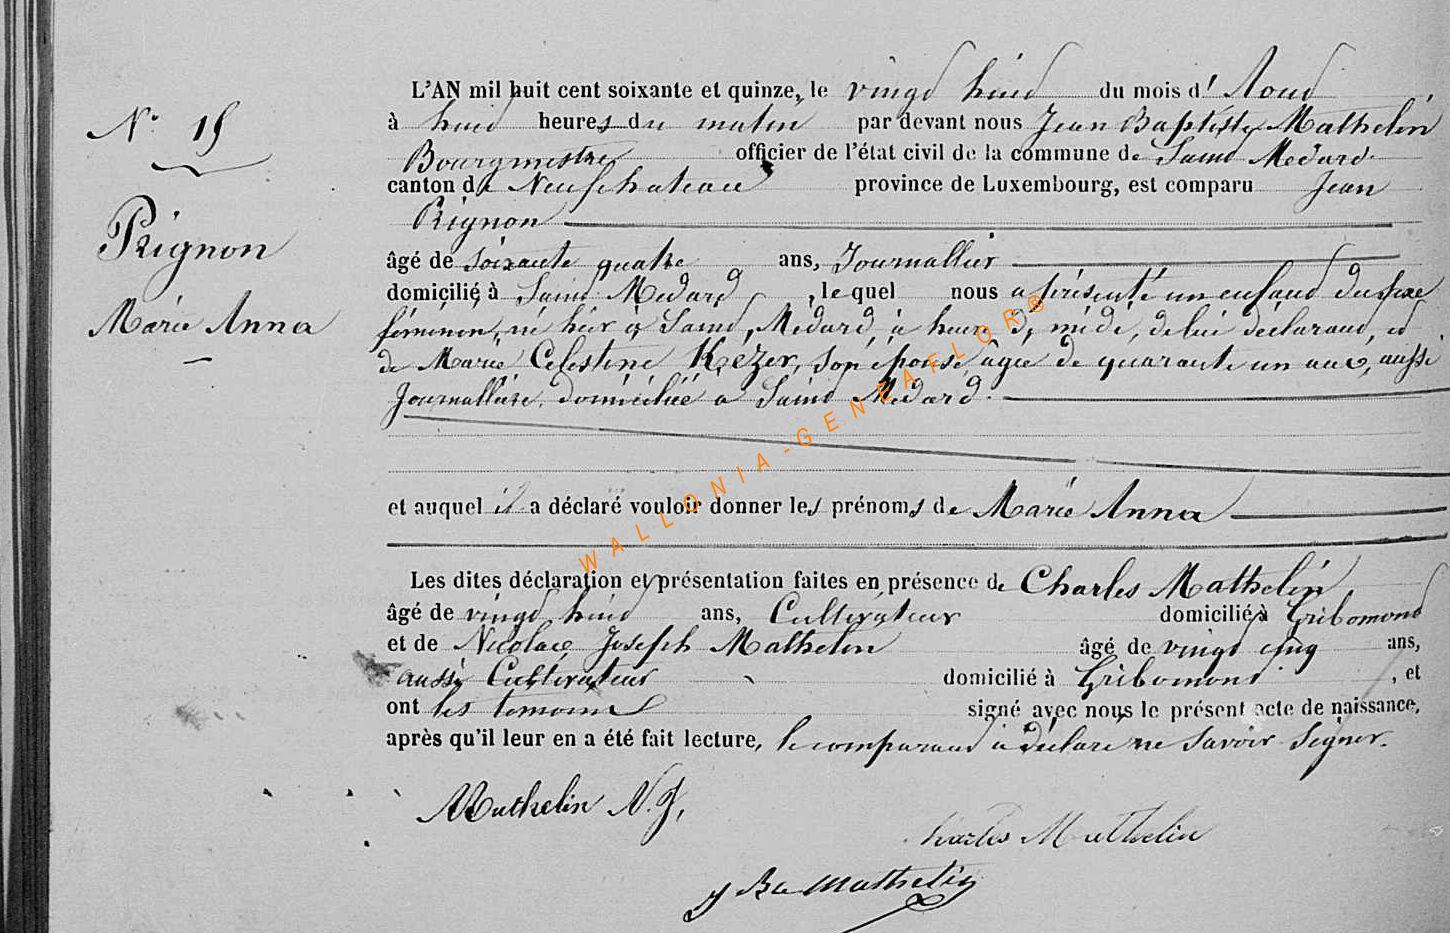 N° 15
Pignon
Marie Anna
L'AN mil huit cent soixante et quinze, le vingt huit du mois d' Aout
à huit heures du matin par devant nous Jean Baptiste Mathelin
Bourgmestre officier de l'état civil de la commune de Saint Médard
canton de Neufchateau province de Luxembourg, est comparu Jean
Pignon
âgé de soixante quatre ans, Journallier
domicilié à Saint Medard, le quel nous a présenté un enfant du sexe
féminin, né hier à Saint Médard, à heure de midi, de lui déclarant, et
de Marie Celestine Kézer, son épouse âgée de quarante un ans, aussi
Journallière, domiciliée à Saint Médard.
et auquel il a déclaré vouloir donner les prénoms de Marie Anna
Les dites déclaration et présentation faites en présence de Charles Mathelin
âgé de vingt huit ans, Cultivateur domicilié à Gribomont
et de Nicolas Joseph Mathelin âgé de vingt cinq ans,
aussi Cultivateur domicilié à Gribomont, et
ont les temoins signé avec nous le présent acte de naissance,
après qu'il leur en a été fait lecture, le comparant a déclaré ne savoir signer.
Mathelin N. J,
Charles Mathelin
J Bte Mathelin
WALLONIA-GENEAFLOR®